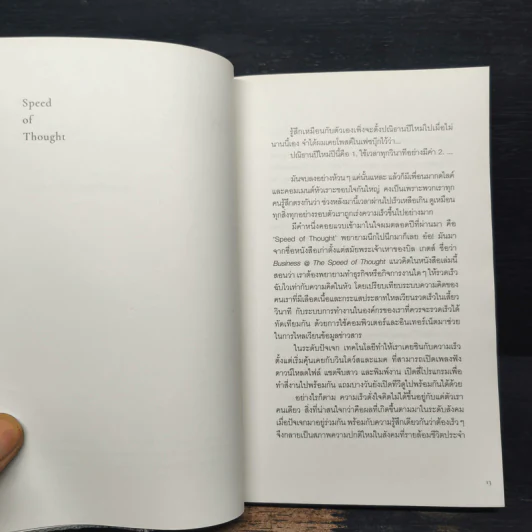 Speed
of
Thought
รู้สึกเหมือนกับตัวเองเพิ่งจะตั้งปณิธานปีใหม่ไปเมื่อไม่
นานนี้เอง จำได้ผมเคยโพสต์ในเฟซบุ๊กไว้ว่า...
ปณิธานปีใหม่ปีนี้คือ 1. ใช้เวลาทุกวินาทีอย่างมีค่า 2. ...
มันจบลงอย่างห้วนๆ แค่นั้นแหละ แล้วก็มีเพื่อนมากดไลค์
และคอมเมนต์หัวเราะชอบใจกันใหญ่ คงเป็นเพราะพวกเราทุก
คนรู้สึกตรงกันว่า ช่วงหลังมานี้เวลาผ่านไปเร็วเหลือเกิน ดูเหมือน
ทุกสิ่งทุกอย่างรอบตัวเราถูกเร่งความเร็วขึ้นไปอย่างมาก
มีคำหนึ่งคอยแวบเข้ามาในใจผมตลอดปีที่ผ่านมา คือ
"Speed of Thought" พยายามนึกไปนึกมาก็เลย อ๋อ! มันมา
จากชื่อหนังสือเก่าตั้งแต่สมัยพระเจ้าเหาของบิล เกตส์ ชื่อว่า
Business @ The Speed of Thought แนวคิดในหนังสือเล่มนี้
สอนว่า เราต้องพยายามทำธุรกิจหรือกิจการงานใดๆ ให้รวดเร็ว
ฉับไวเท่ากับความคิดในหัว โดยเปรียบเทียบระบบความคิดของ
คนเราที่มีเลือดเนื้อและกระแสประสาทไหลเวียนรวดเร็วในเสี้ยว
วินาที กับระบบการทำงานในองค์กรของเราที่ควรจะรวดเร็วให้ได้
ทัดเทียมกัน ด้วยการใช้คอมพิวเตอร์และอินเทอร์เน็ตมาช่วย
ในการไหลเวียนข้อมูลข่าวสาร
ในระดับปัจเจก เทคโนโลยีทำให้เราเคยชินกับความเร็ว
ตั้งแต่เริ่มคุ้นเคยกับวินโดว์สและแมค ที่สามารถเปิดเพลงฟัง
ดาวน์โหลดไฟล์ แชตจีบสาว และพิมพ์งาน เปิดสี่โปรแกรมเพื่อ
ทำสี่งานไปพร้อมกัน แถมบางวันยังเปิดทีวีดูไปพร้อมกันได้ด้วย
อย่างไรก็ตาม ความเร็วดั่งใจคิดไม่ได้ขึ้นอยู่กับแค่ตัวเรา
คนเดียว สิ่งที่น่าสนใจกว่าคือผลที่เกิดขึ้นตามมาในระดับสังคม
เมื่อปัจเจกมาอยู่ร่วมกัน พร้อมกับความรู้สึกเดียวกันว่าต้องเร็วๆ
จึงกลายเป็นสภาพความปกติใหม่ในสังคมที่รายล้อมชีวิตประจำ